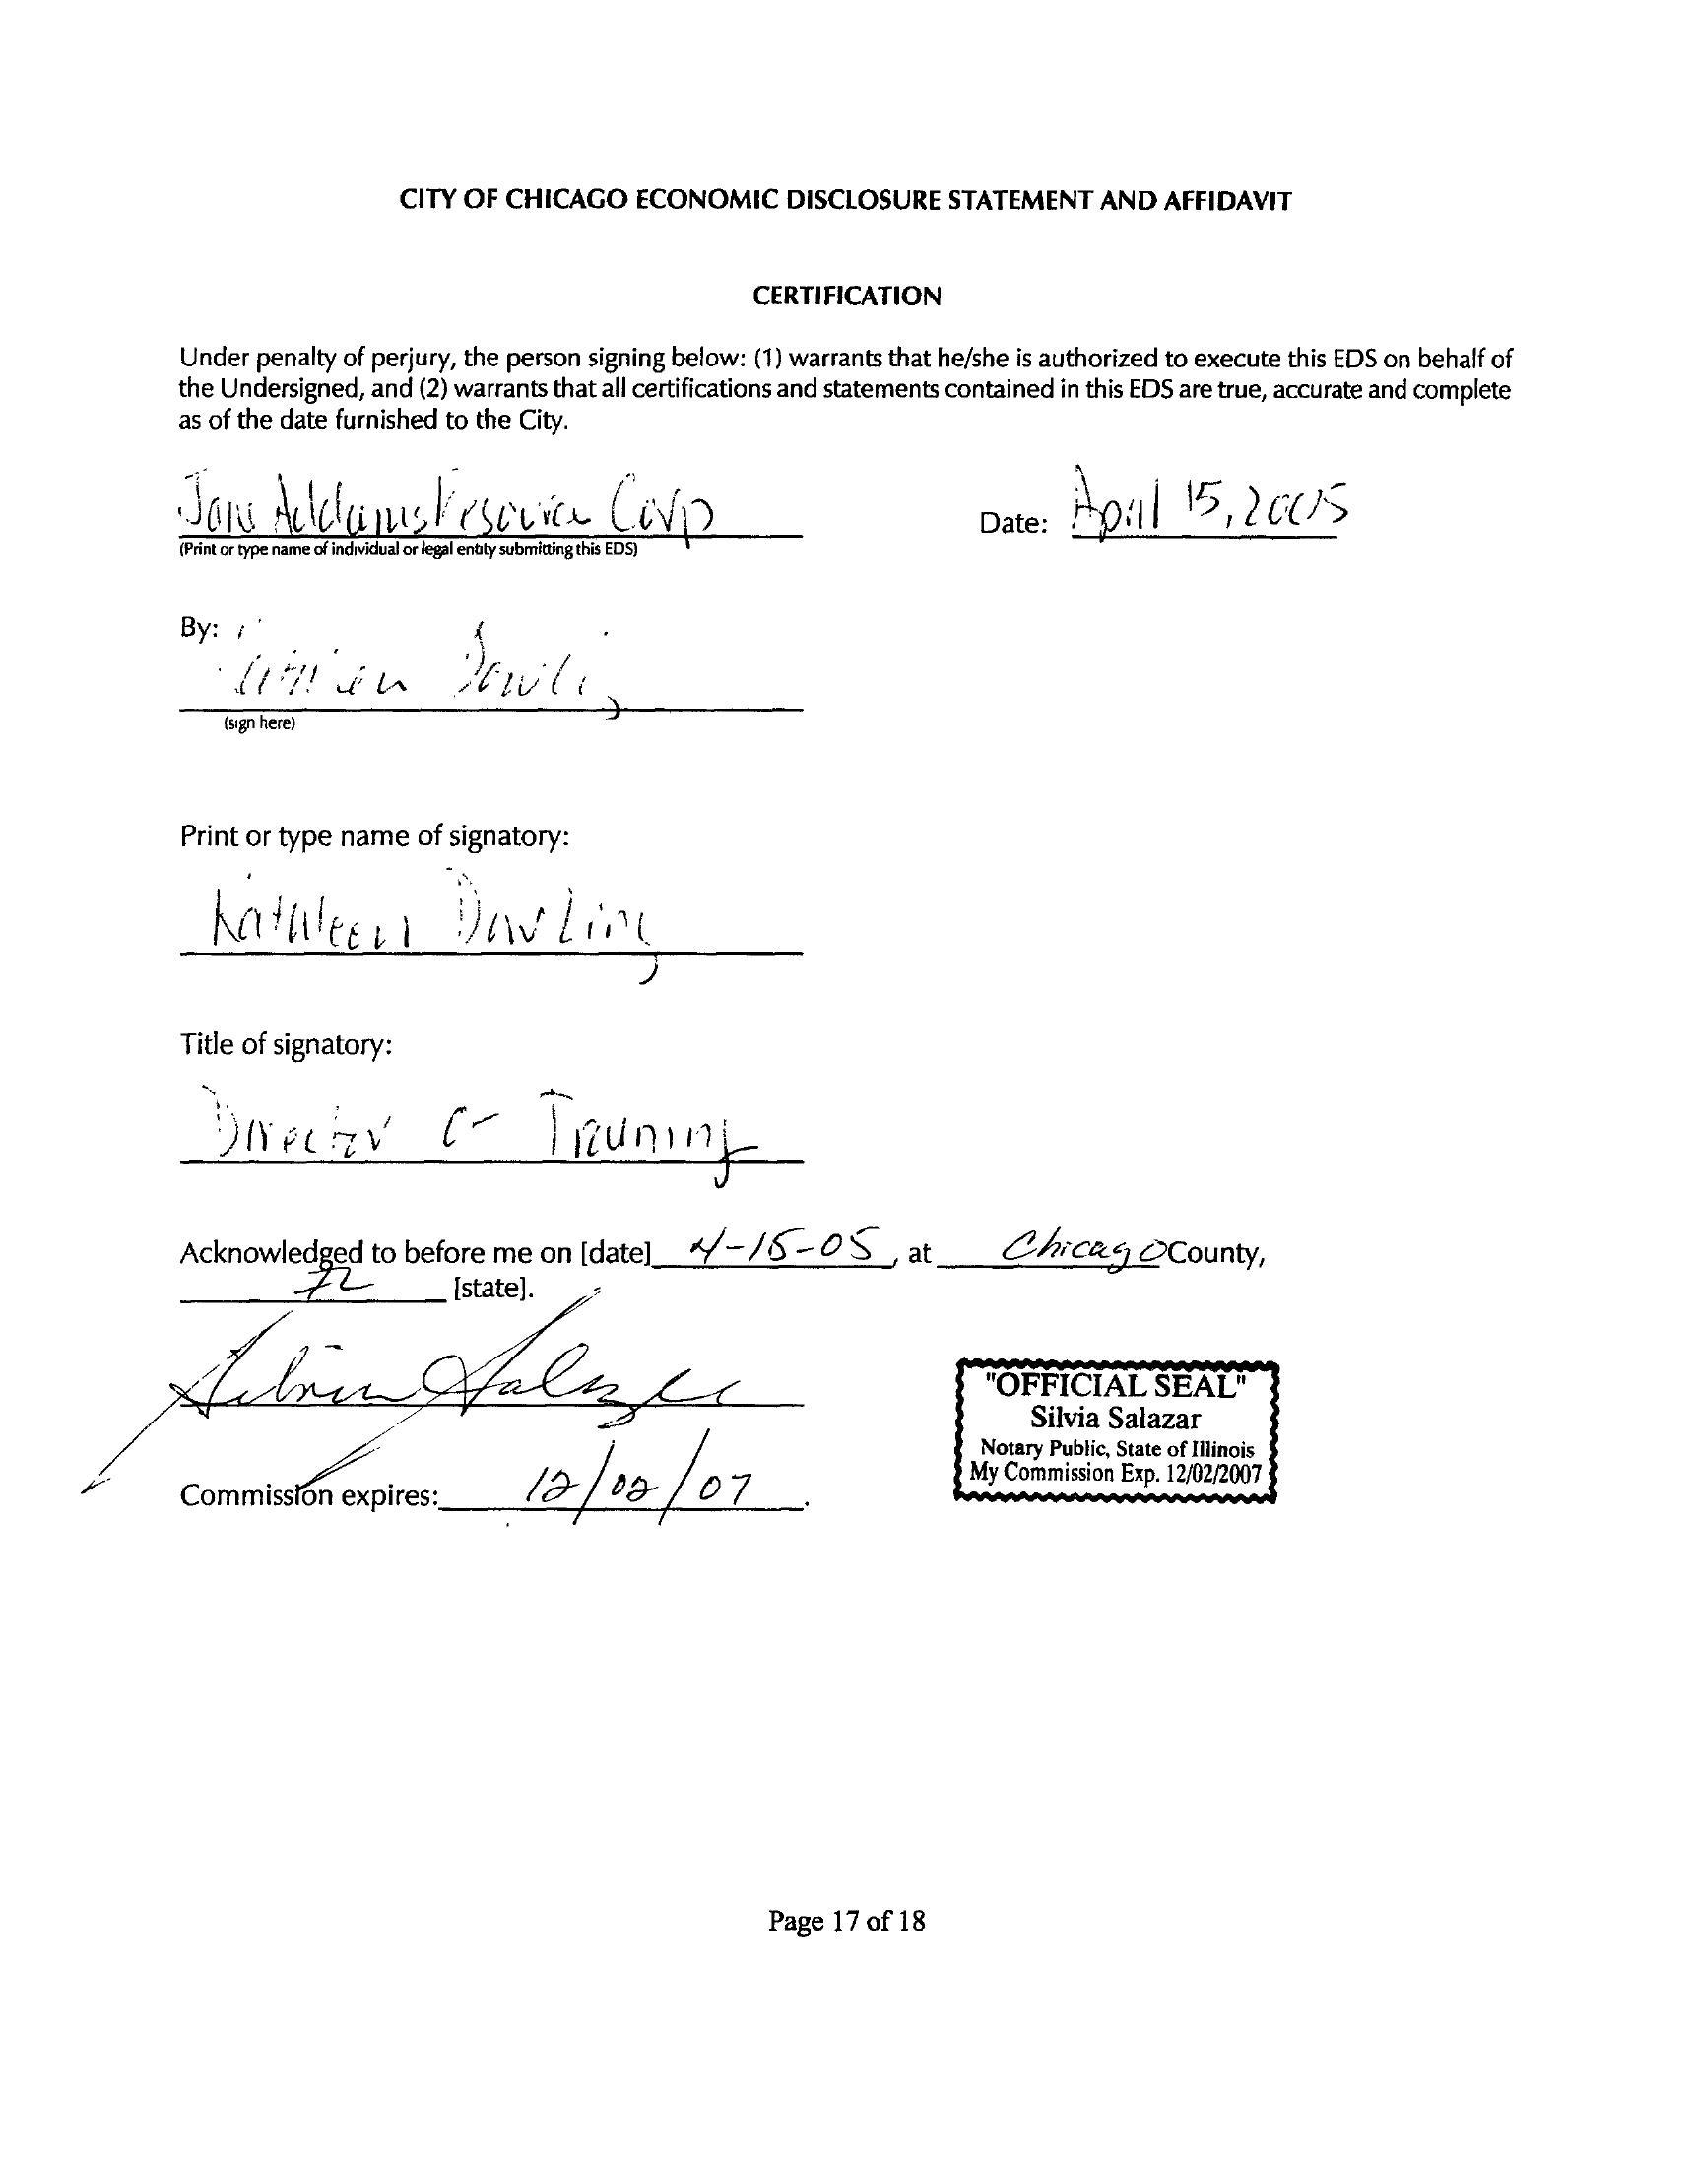 CITY OF CHICAGO ECONOMIC DISCLOSURE STATEMENT AND AFFIDAVIT
CERTIFICATION
Under penalty of perjury, the person signing below: (1) warrants that he/she is authorized to execute this EDS on behalf of
the Undersigned, and (2) warrants that all certifications and statements contained in this EDS are true, accurate and complete
as of the date furnished to the City.
Jane Addams Resource Corp
Date: April 15, 2005
(Print or type name of individual or legal entity submitting this EDS)
By:
(sign here)
Print or type name of signatory:
Kathleen Dowling
Title of signatory:
Director of Training
Acknowledged to before me on [date] 4-15-05, at Chicago County,
IL [state].
Silvia Salazar
"OFFICIAL SEAL"
Silvia Salazar
Notary Public, State of Illinois
My Commission Exp. 12/02/2007
Commission expires: 12/02/07.
Page 17 of 18